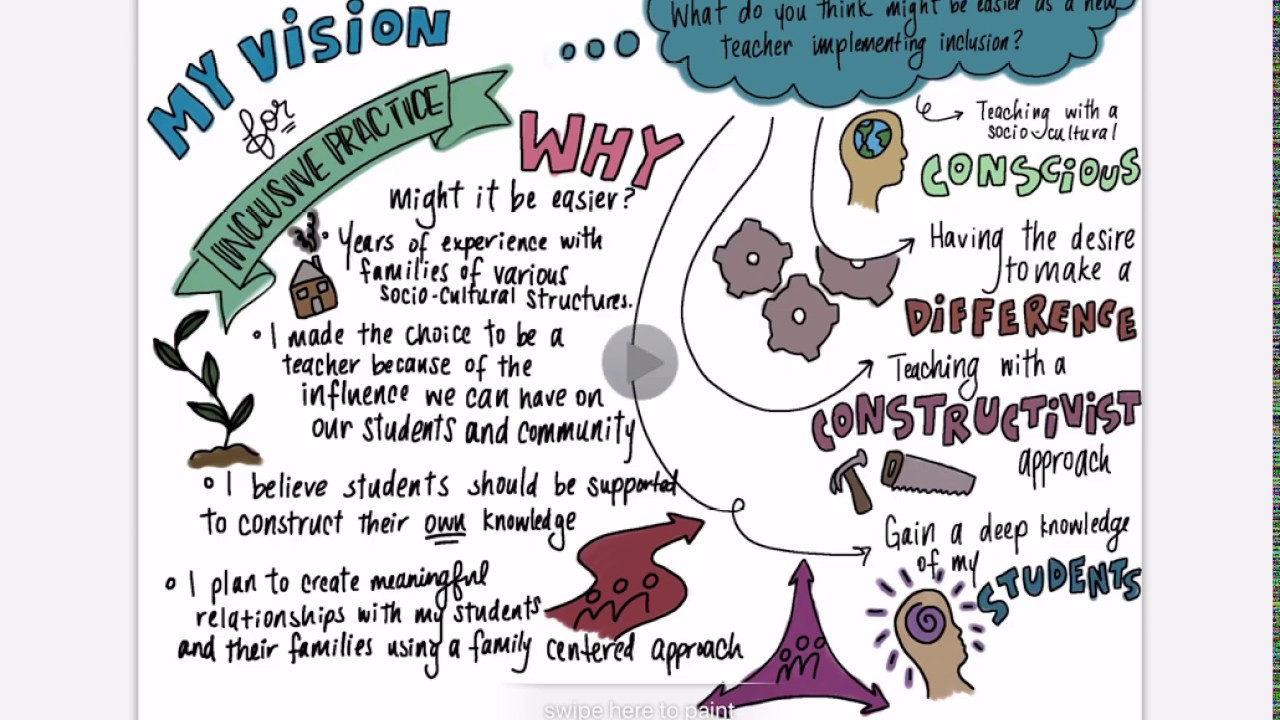 MY VISION
for
INCLUSIVE PRACTICE
What do you think might be easier as a new
teacher implementing inclusion?
WHY
might it be easier?
Years of experience with
families of various
socio-cultural structures.
I made the choice to be a
teacher because of the
influence we can have on
our students and community
I believe students should be supported
to construct their own knowledge
I plan to create meaningful
relationships with my students
and their families using a family centered approach
Teaching with a
socio-cultural
CONSCIOUS
Having the desire
to make a
DIFFERENCE
Teaching with a
CONSTRUCTIVIST
approach
Gain a deep knowledge
of my
STUDENTS
swipe here to paint